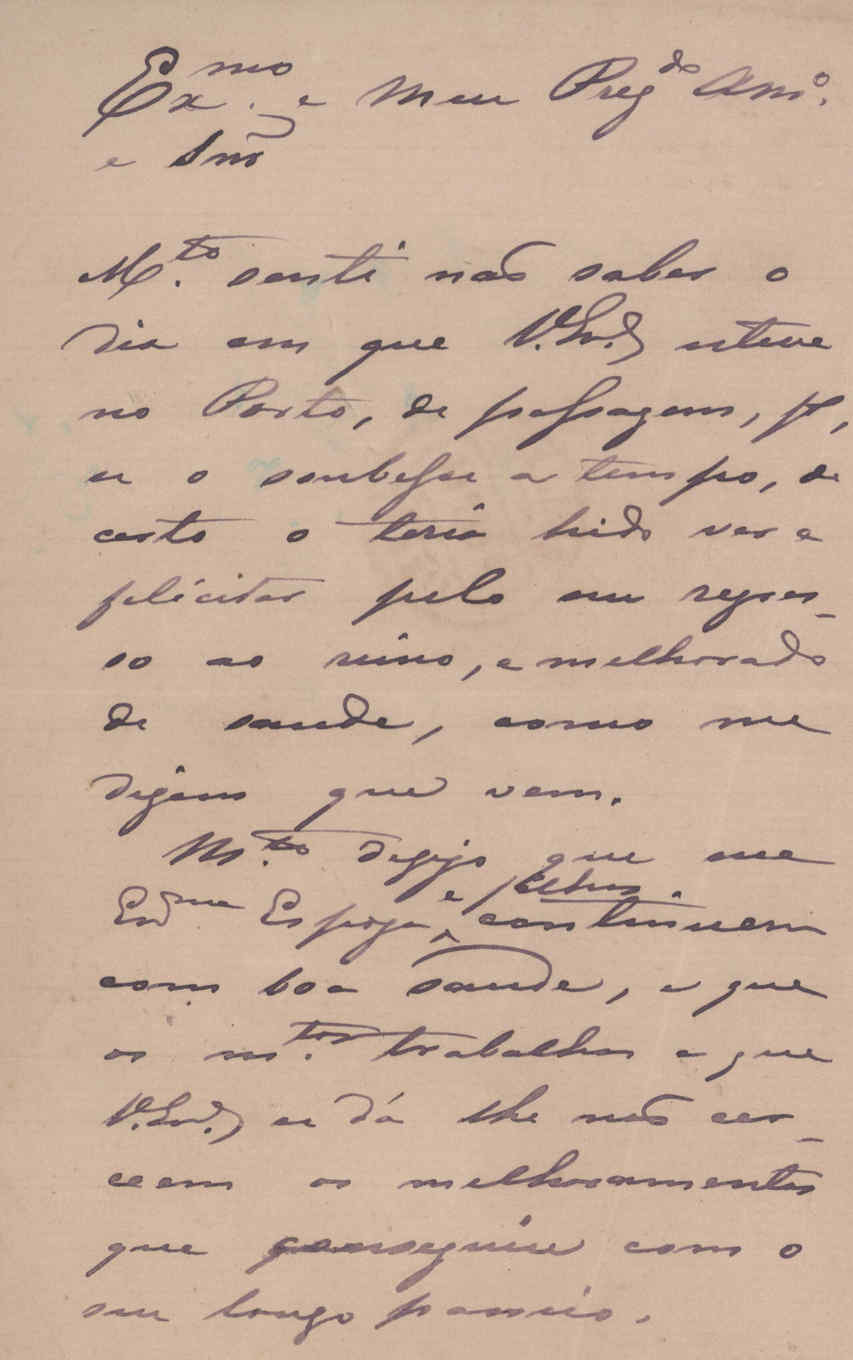 Ex.mo e Meu Preg.do Am.º
e Snr
M.to senti não saber o
dia em que V. Ex.ª esteve
no Porto, de passagem, p.ª,
se o soubesse a tempo, de
certo o teria hido ver e
felicitar pelo seu regres-
so ao reino, e melhorado
de saude, como me
dizem que vem.
M.to desejo que sua
Ex.ma Espoza, e filhos continuem
com boa saude, e que
os m.tos trabalhos a que
V. Ex.ª se dá lhe não cer-
ceem os melhoramentos
que conseguiu com o
seu longo passeio.